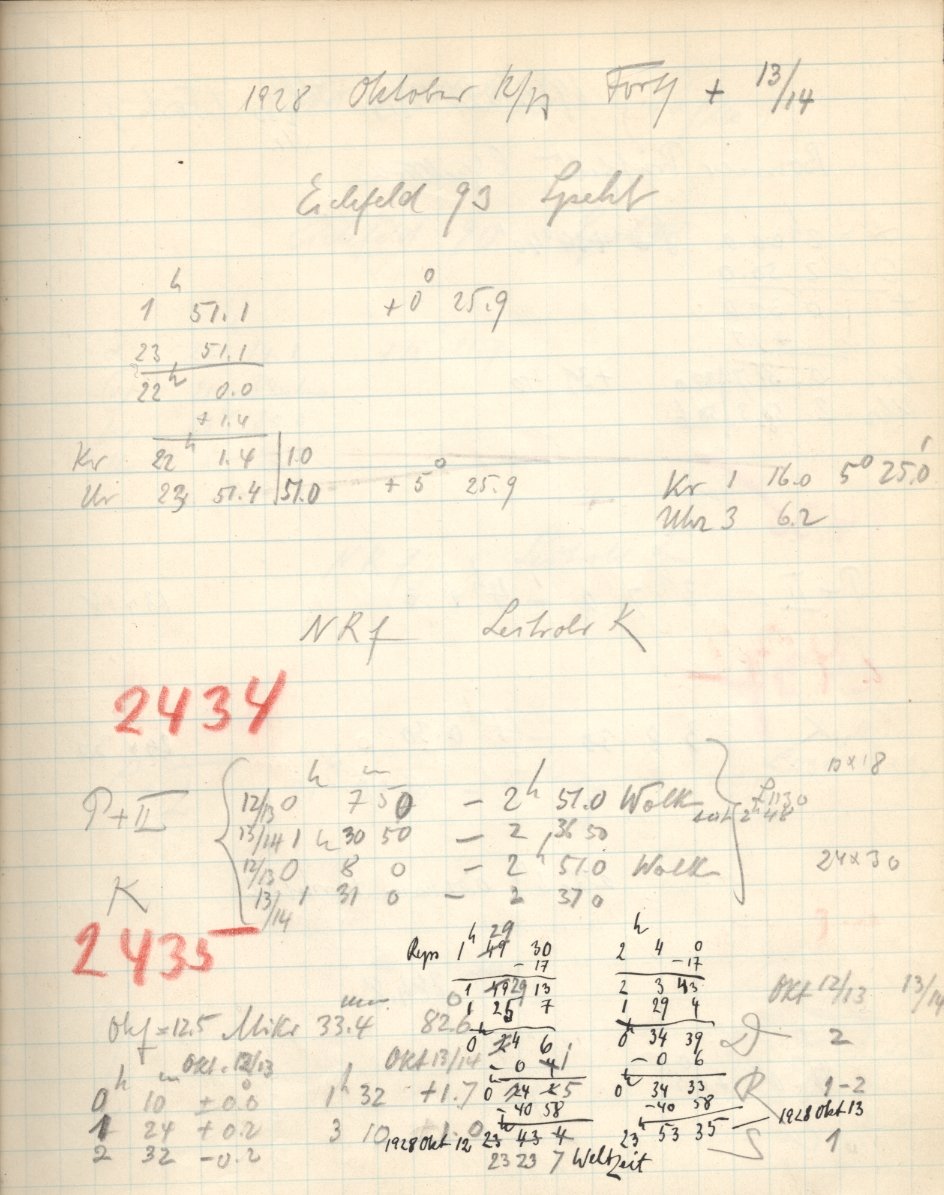 1928 Oktober 12/13 Forts + 13/14
Eichfeld 93 Specht
1 h 51.1 +0° 25.9
23 51.1
22 h 0.0
+1.4
Kr 22 h 1.4 | 1.0
Uhr 23 51.4 | 51.0 +5° 25.9
Kr 1 16.0 5° 25.0
Uhr 3 6.2
NRf Leitrohr K
2434
h m
P+II 12/13 0 7 50 – 2 h 51.0 Wolk
13/14 1 h 30 50 – 2 36 50
12/13 0 8 0 – 2 h 51.0 Wolk
K 13/14 1 31 0 – 2 37 0
18
24×30
2435
Reps 1 h 49 29 30
-17
1 49 29 13
1 25 7
0 h 24 6
- 0
0
-40 58
1928 Okt 12 23 43 4
23 23 7 Weltzeit
2 h 4 0
-17
2 3 43
1 29 4
0 h 34 39
- 0 6
0 h 34 33
-40 58
23 h 53 35 – 1928 Okt 13
Okf = 12.5 Mikr 33.4 82.6
Okt. 12/13
0 h 10 m ±0.0
1 24 +0.2
2 32 -0.2
Okt 13/14
1 h 32 +1.7
3 10 +1.0
Okt 12/13 13/14
D 2
R 1-2
S 1